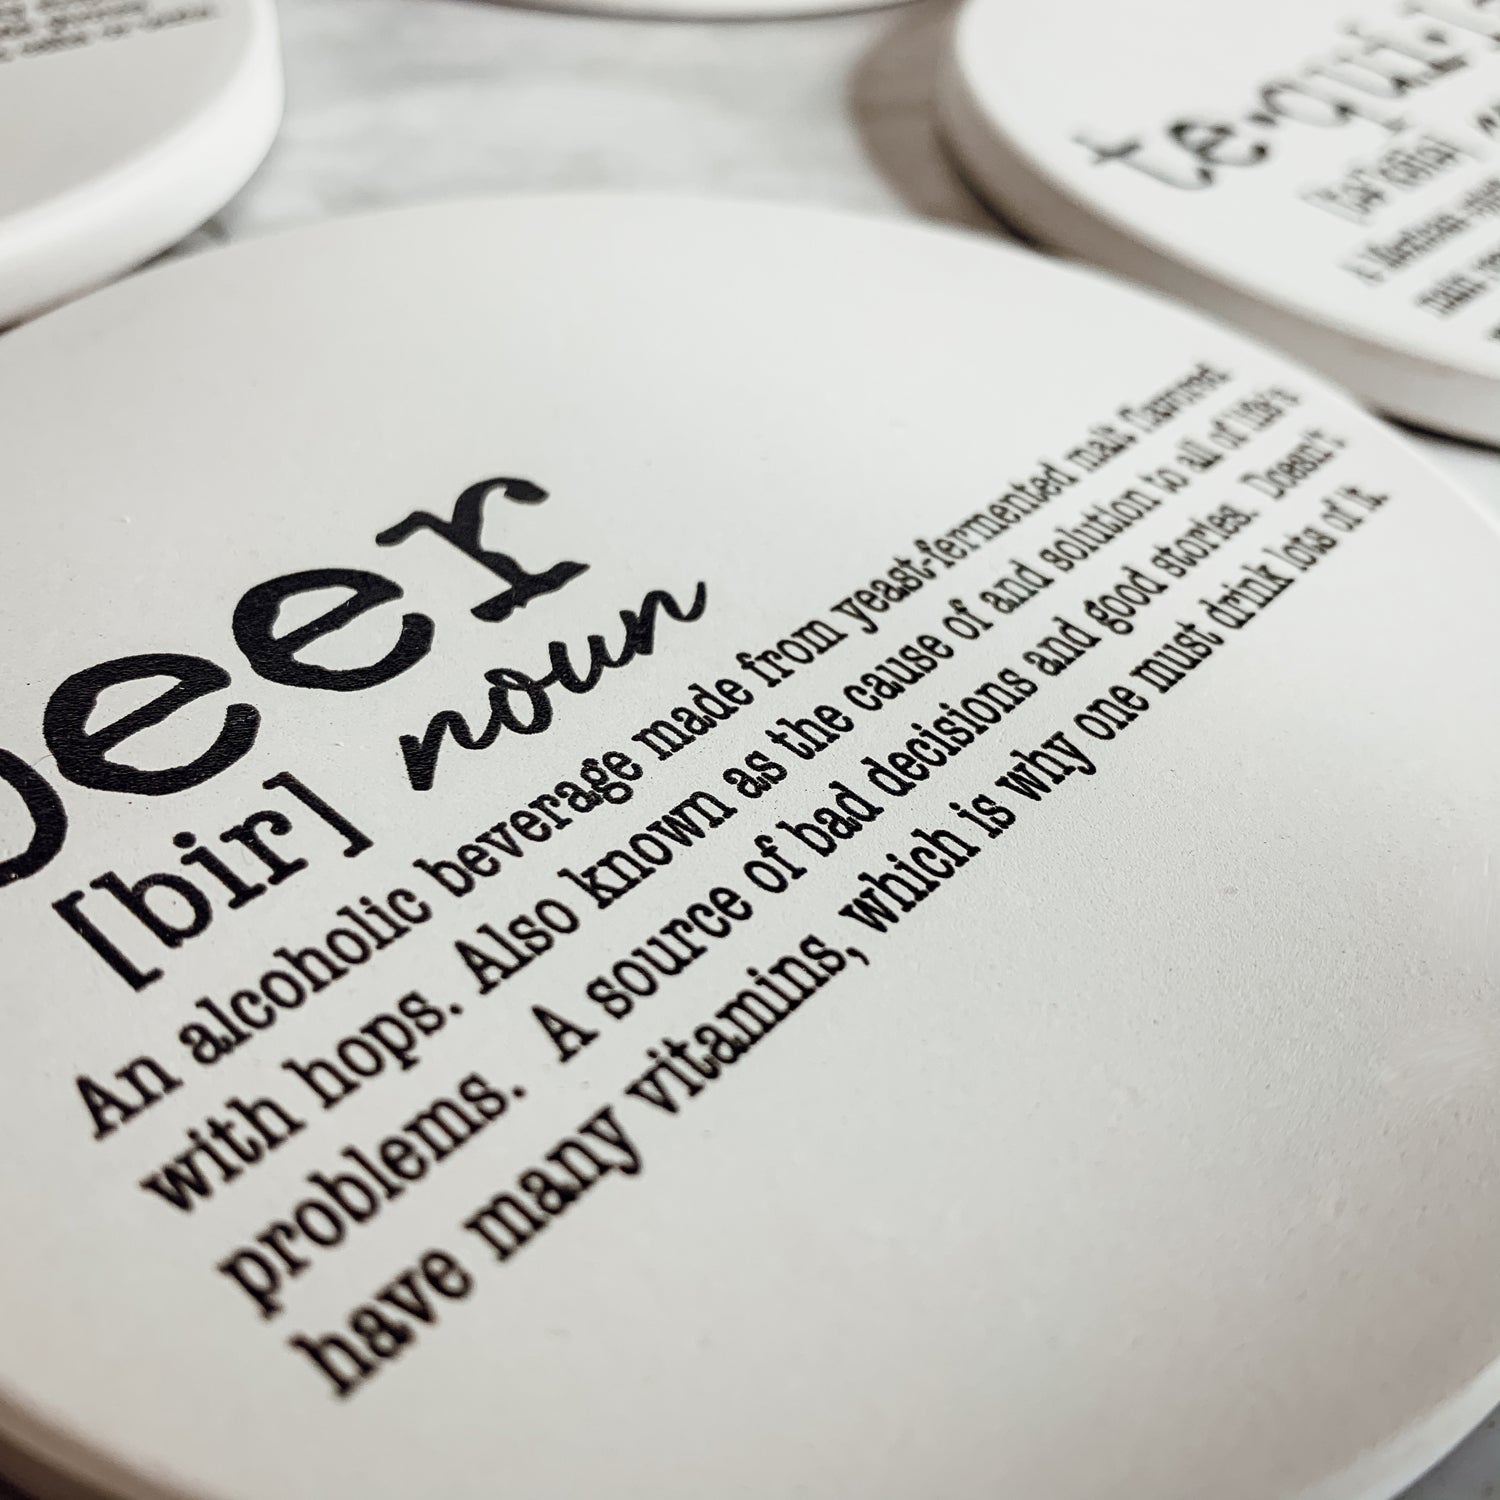 beer
noun
[bir]
An alcoholic beverage made from yeast-fermented malt flavored
with hops. Also known as the cause of and solution to all of life's
problems. A source of bad decisions and good stories. Doesn't
have many vitamins, which is why one must drink lots of it.
te•qui•l
a Mexican